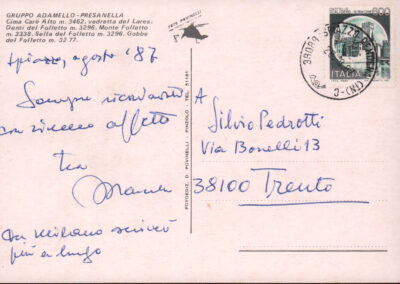 GRUPPO ADAMELLO - PRESANELLA
Cima Carè Alto m. 3462, vedretta del Lares.
Denti del Folletto m. 3296, Monte Folletto
m. 3338, Sella del Folletto m. 3296, Gobbe
del Folletto m. 3277.
Spiazzo, agosto '87
Sempre ricordandoti
con sincero affetto
tua
Da Milano scriverò
più a lungo
FOTOEDIZ. D. POVINELLI - PINZOLO - TEL. 51161
FOTO POVINELLI
ITALIA
600
A
Silvio Pedrotti
Via Bonelli 13
38100 Trento